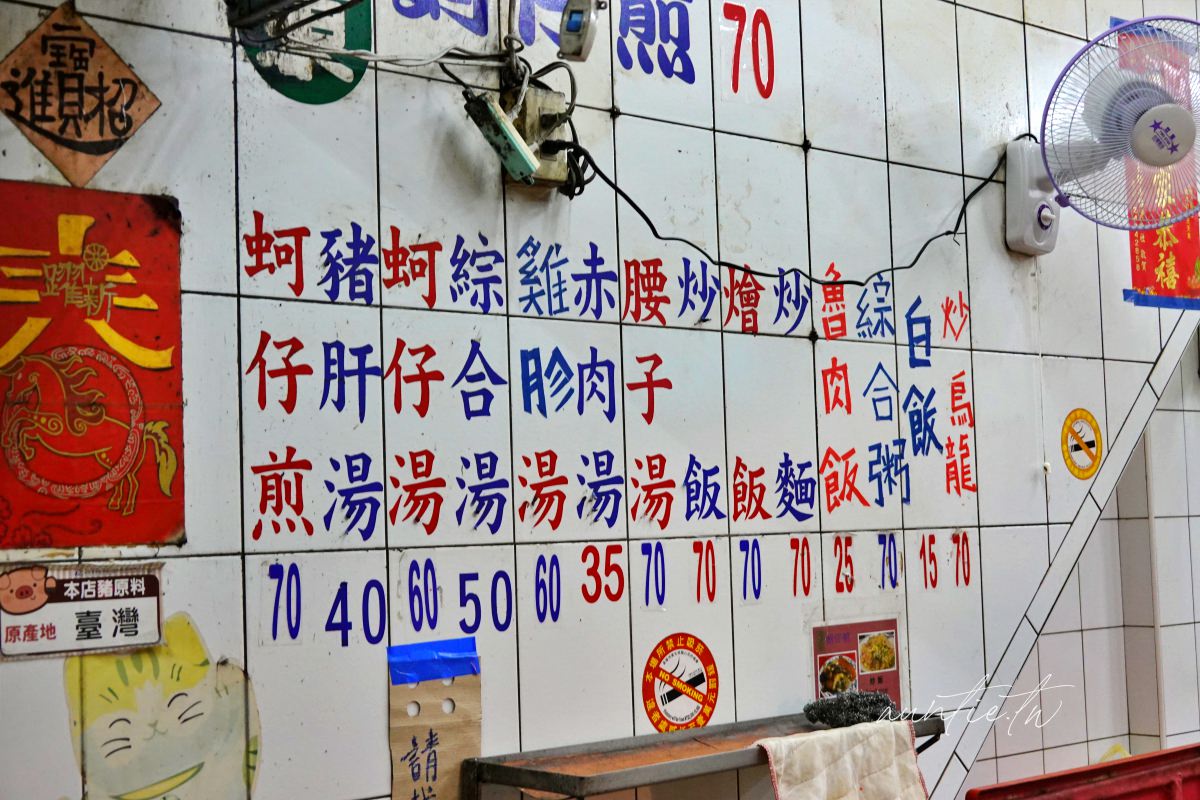 招財進寶
躍新
本店豬原料
原產地 臺灣
煎
70
蚵仔煎 70
豬肝湯 40
蚵仔湯 60
綜合湯 50
雞胗湯 60
赤肉湯 35
腰子湯 70
炒飯 70
燴飯 70
炒麵 70
魯肉飯 25
綜合粥 70
白飯 15
炒烏龍 70
恭禧
請
本場所禁止吸菸
NO SMOKING
auntie.tw